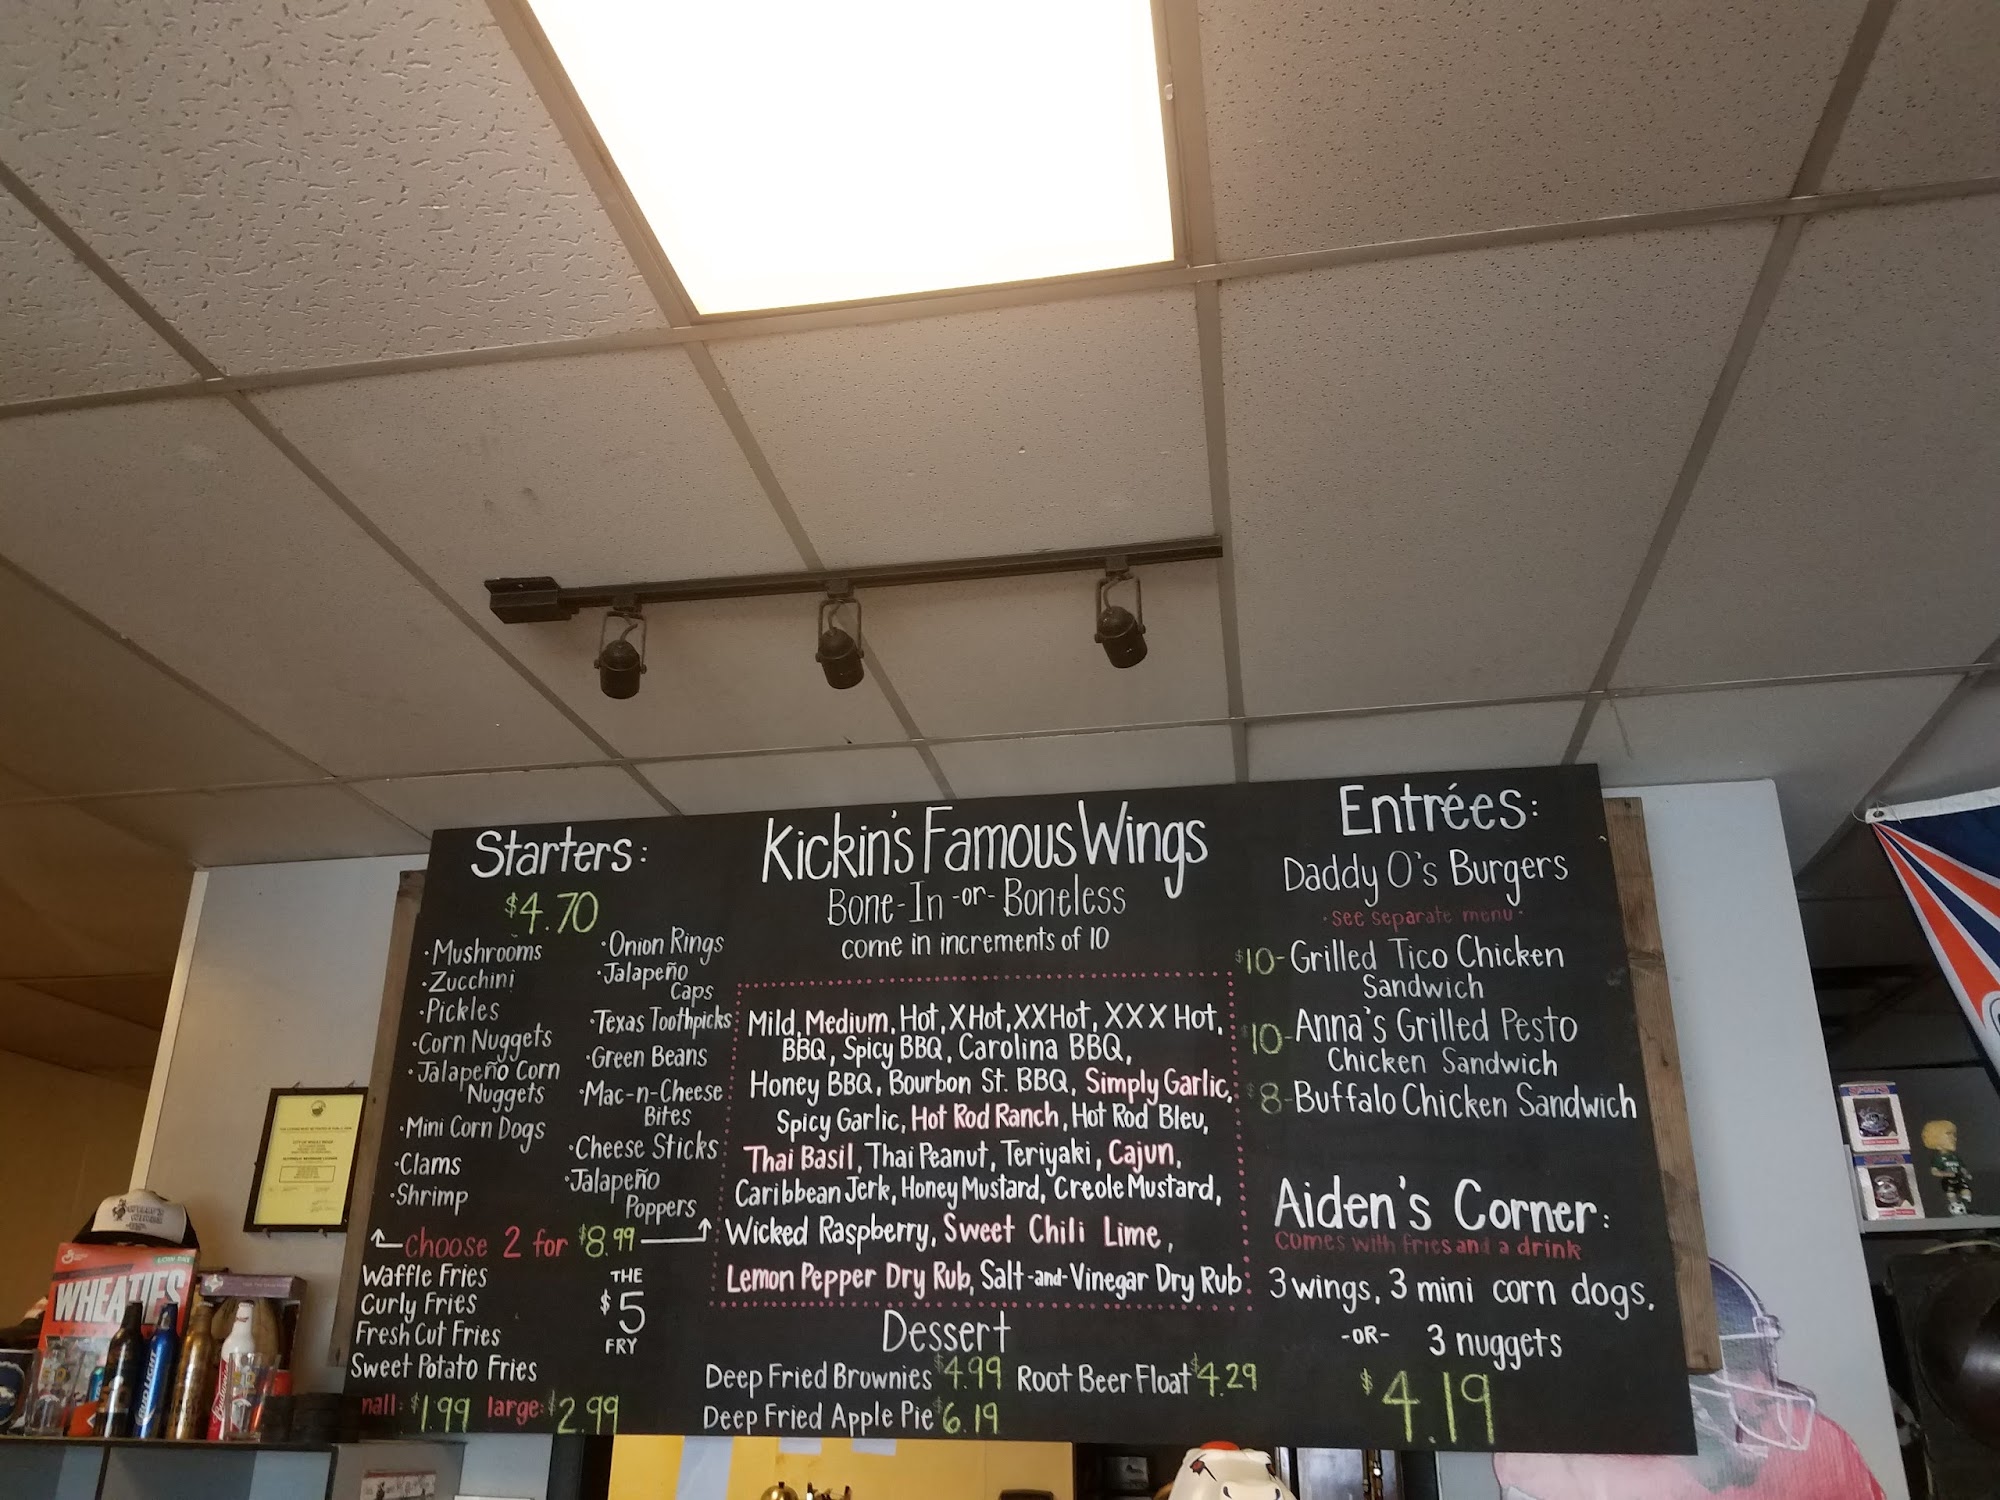 Starters:
$4.70
·Mushrooms
·Zucchini
·Pickles
·Corn Nuggets
·Jalapeño Corn
Nuggets
·Mini Corn Dogs
·Clams
·Shrimp
·Onion Rings
·Jalapeño
Caps
·Texas Toothpicks
·Green Beans
·Mac-n-Cheese
Bites
·Cheese Sticks
·Jalapeño
Poppers
Choose 2 for $8.99
Waffle Fries
Curly Fries
Fresh Cut Fries
Sweet Potato Fries
THE
$5
FRY
mall: $1.99 large: $2.99
Kickin's Famous Wings
Bone-In -or- Boneless
come in increments of 10
Mild, Medium, Hot, XHot, XXHot, XXX Hot,
BBQ, Spicy BBQ, Carolina BBQ,
Honey BBQ, Bourbon St. BBQ, Simply Garlic,
Spicy Garlic, Hot Rod Ranch, Hot Rod Bleu,
Thai Basil, Thai Peanut, Teriyaki, Cajun,
Caribbean Jerk, Honey Mustard, Creole Mustard,
Wicked Raspberry, Sweet Chili Lime,
Lemon Pepper Dry Rub, Salt-and-Vinegar Dry Rub
Dessert
Deep Fried Brownies $4.99 Root Beer Float $4.29
Deep Fried Apple Pie $6.19
Entrées:
Daddy O's Burgers
·see separate menu·
$10-Grilled Tico Chicken
Sandwich
$10-Anna's Grilled Pesto
Chicken Sandwich
$8-Buffalo Chicken Sandwich
Aiden's Corner:
comes with fries and a drink
3 wings, 3 mini corn dogs,
-OR- 3 nuggets
$4.19
WHEATIES
Bud Light
Budweiser